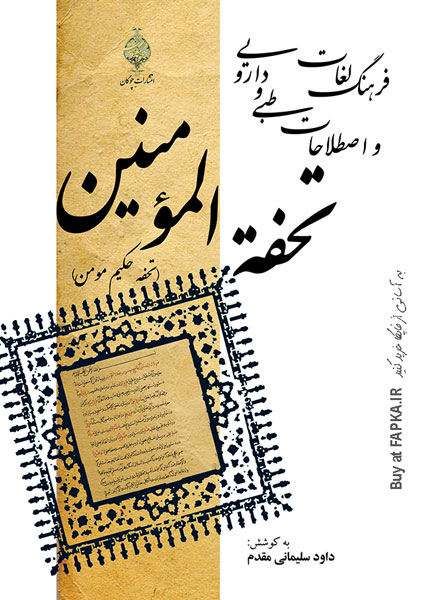 انتشارات چوگان
فرهنگ لغات
و اصطلاحات طبی و دارویی
تحفة المؤمنین
(تحفه حکیم مومن)
به آسانی از فاپکا خرید کنید
Buy at FAPKA.IR
به کوشش:
داود سلیمانی مقدم